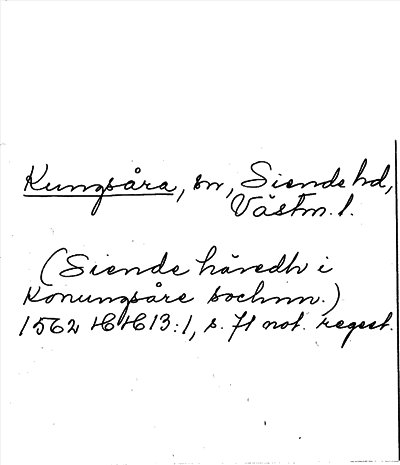 Kungsåra, sn, Siende hd,
Västm. l.
(Siende häredh i
Konungsåre sochnn.)
1562 HH 13:1, s. 71 not. regest.